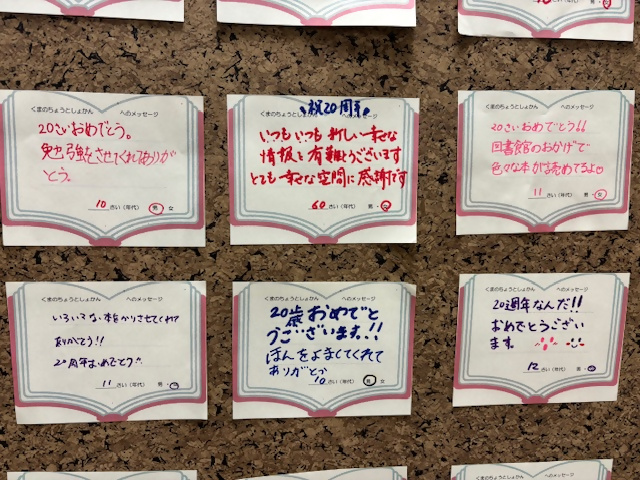 くまのちょうとしょかん　へのメッセージ
20さいおめでとう。
勉強をさせてくれてありが
とう。
10 さい（年代） 男・女
祝20周年
くまのちょうとしょかん　へのメッセージ
いつもいつも 新しい
情報を有難とうございます
とても な空間に感謝です
60 さい（年代） 男・
くまのちょうとしょかん　へのメッセージ
20さいおめでとう!!
図書館のおかげで
色々な本が読めてるよ♡
11 さい（年代） 男・女
くまのちょうとしょかん　へのメッセージ
いろいろな本をかりさせてくれて
ありがとう!!
20周年おめでとう!!
11 さい（年代） 男・
くまのちょうとしょかん　へのメッセージ
20歳おめでと
うございます。!!
ほんをよませてくれて
ありがとう
10 さい（年代） 男・女
くまのちょうとしょかん　へのメッセージ
20週年なんだ!!
おめでとうござい
ます。
12 さい（年代） 男・